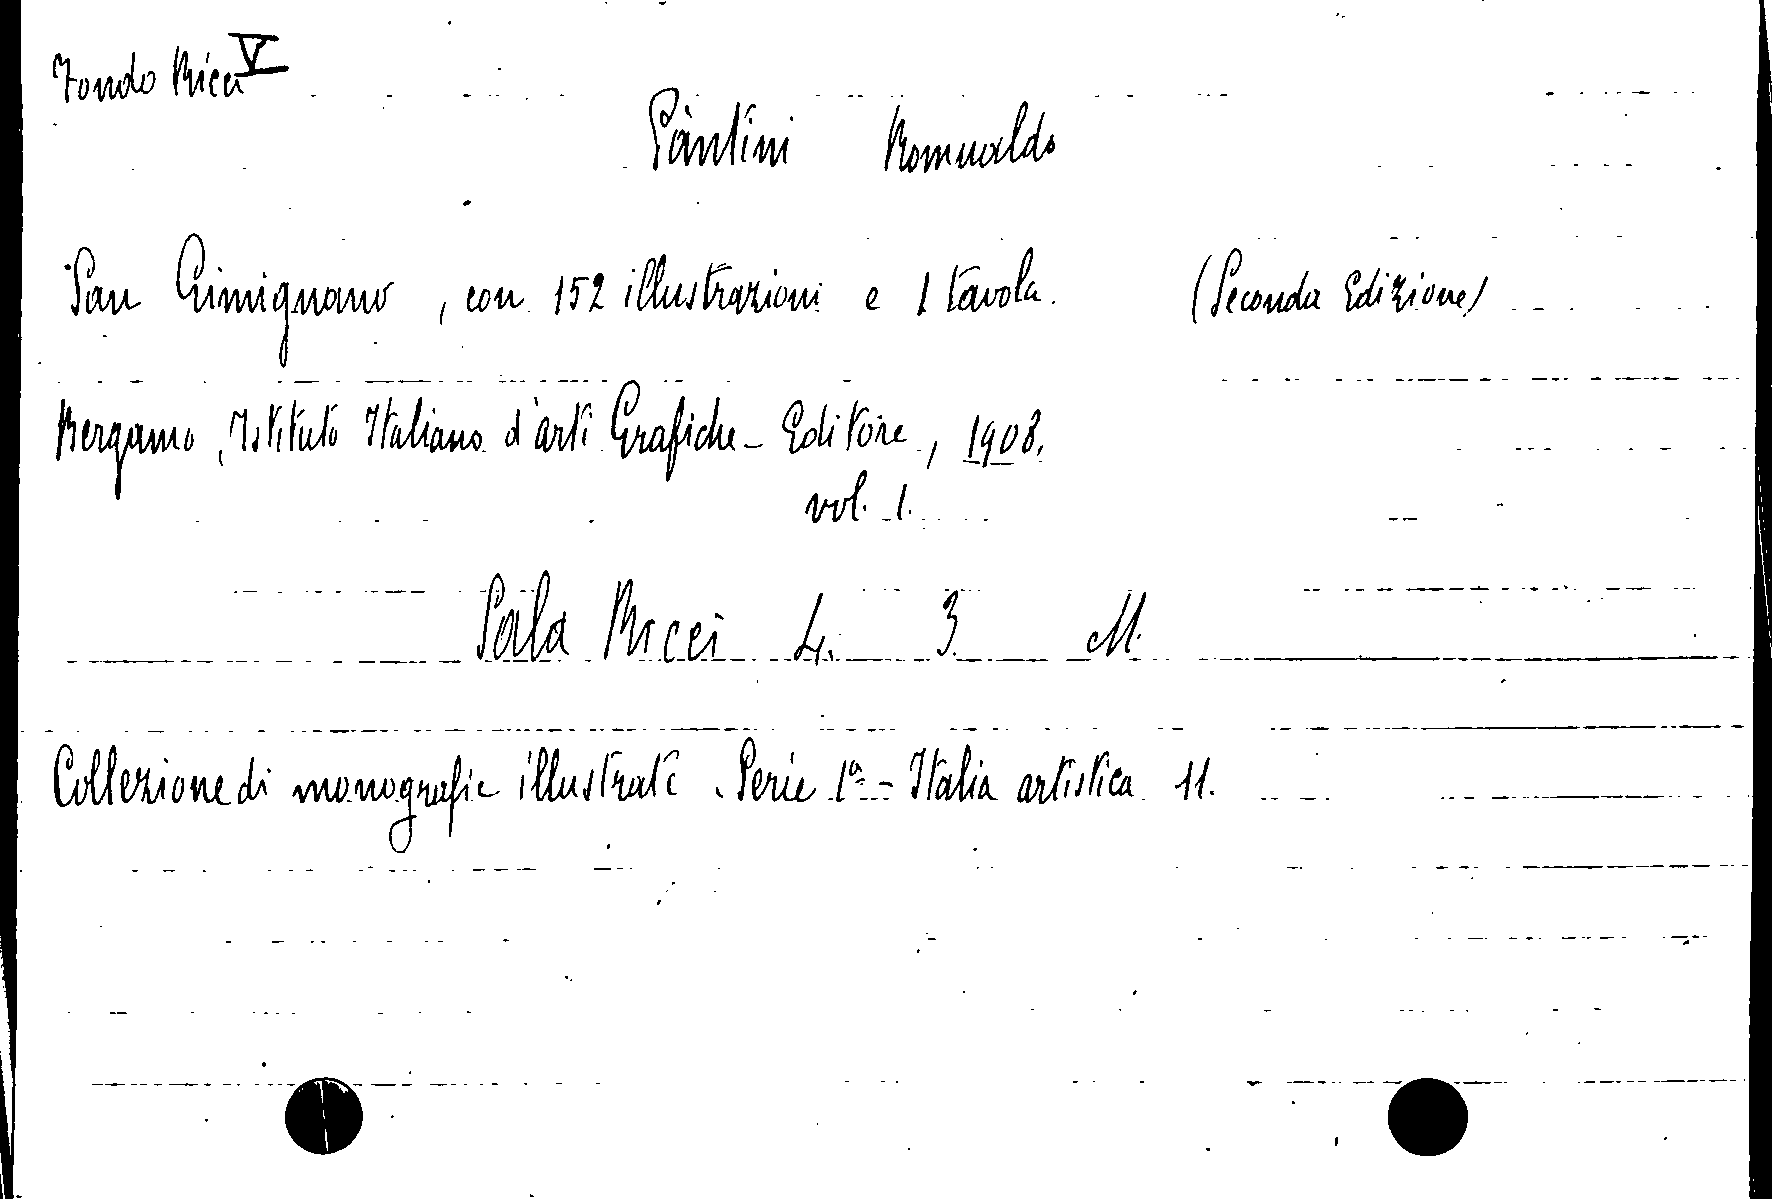 Fondo Ricci V
Pàntini Romualdo
San Gimignano, con 152 illustrazioni e 1 tavola. (Seconda Edizione)
Bergamo, Istituto Italiano d'arti Grafiche - Editore, 1908.
vol. 1.
Sala Ricci 4. 3. M.
Collezione di monografie illustrate. Serie 1ª - Italia artistica 11.